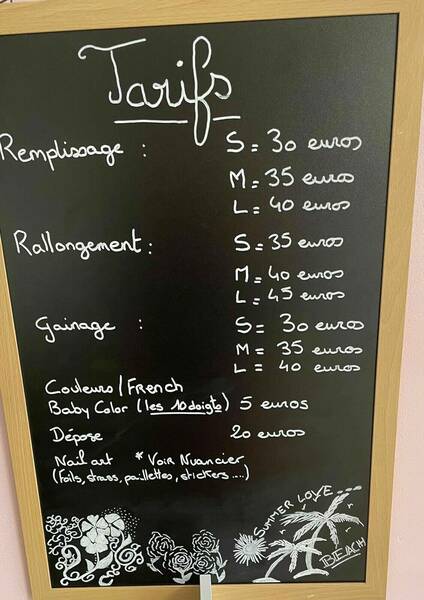 Tarifs
Remplissage : S = 30 euros
M = 35 euros
L = 40 euros
Rallongement : S = 35 euros
M = 40 euros
L = 45 euros
Gainage : S = 30 euros
M = 35 euros
L = 40 euros
Couleurs / French
Baby Color (les 10 doigts) 5 euros
Dépose 20 euros
Nail art * Voir Nuancier
(Foils, strass, paillettes, stickers ....)
SUMMER LOVE
BEACH